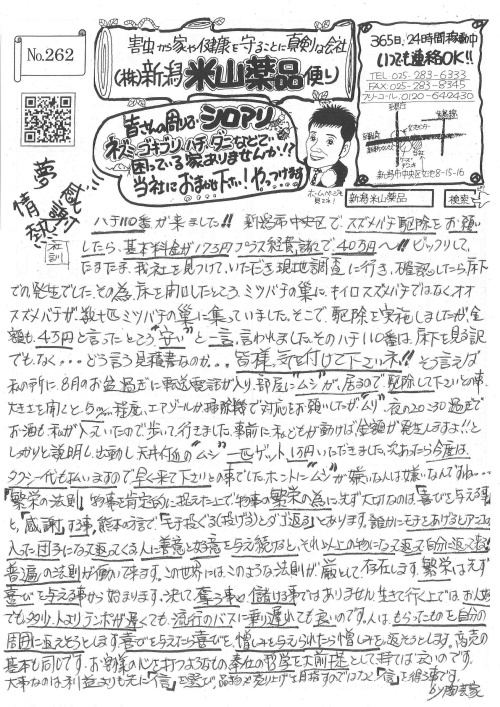 No.262
害虫から家や健康を守ることに真剣な会社
(株)新潟米山薬品便り
365日、24時間稼動中
いつでも連絡OK!!
TEL 025-283-6333
FAX 025-283-8345
フリーコール 0120-642430
新潟市中央区
8-15-16
皆さんの周りでシロアリ
ネズミ ゴキブリ ハチ ダニなどで
困っている家ありませんか!?
当社におまかせ下さい! やっつけます
ホームページも見てネ!
新潟米山薬品
検索
夢
情熱
感謝
社訓
ハチ110番が来ました!! 新潟市中央区で、スズメバチ駆除をお願い
したら、基本料金が17万円プラス諸経費で40万円へ!! ビックリして、
たまたま、我社を見つけていただき現地調査に行き、確認したら床下
での発生でした。その為、床を開口したところ、ミツバチの巣に、キイロスズメバチではなくオオ
スズメバチが数十匹ミツバチの巣に集っていました。そこで、駆除を実施しましたが金
額も4万円と言ったところ"安い"と一言、言われました。そのハチ110番は、床下を見る訳
でもなく・・・どう言う見積書なのか・・・皆様、気を付けて下さいネ!! そう言えば
私の所に、8月のお盆過ぎに転送電話が入り、部屋に"ムシ"が居るので駆除して下さいとの事。
大きさを聞くと、5㎜程度、エアゾールか掃除機で対応をお願いしたが"ムリ"。夜の20:30過ぎで
お酒も私が入っていたので歩いて行きました。事前に私どもが動けば金額が発生しますよ!!と
しっかりと説明し、出動し天井付近の"ムシ"一匹ゲット1万円いただきました。次あったら今度は、
タクシー代も払いますので早く来て下さいとの事でした。ホントに"ムシ"が嫌いな人は嫌いなんですね・・・
『繁栄の法則』物事を肯定的に捉えた上で物事の繁栄の為に、まず大切なのは、『喜びを与える事』
と、『感謝』する事。熊本の方言で
入った団子になって返ってくる。人に善意と好意を与え続けると、それ以上の物になって返って自分に返って来る
普遍の法則が働いて来ます。この世界には、このような法則が、厳として、存在します。繁栄は、まず
喜びを与える事から始まります。決して、奪う事や儲ける事ではありません。生きて行く上では、お人好し
でも、多少、人よりテンポが遅くでも、流行のバスに乗り遅れても良いのです。人は、もらったものを自分の
周囲に返そうとします。喜びを与えたら喜びを、憎しみを与えられたら憎しみを返そうとします。商売の
基本も同じです。お客様の心を打つようなもの、奉仕の哲学を大前提として、持てば良いのです。
大事なのは、利益よりも先に『信』を選び、品物や売り上げを目指すのではなく『信』を得る事です。